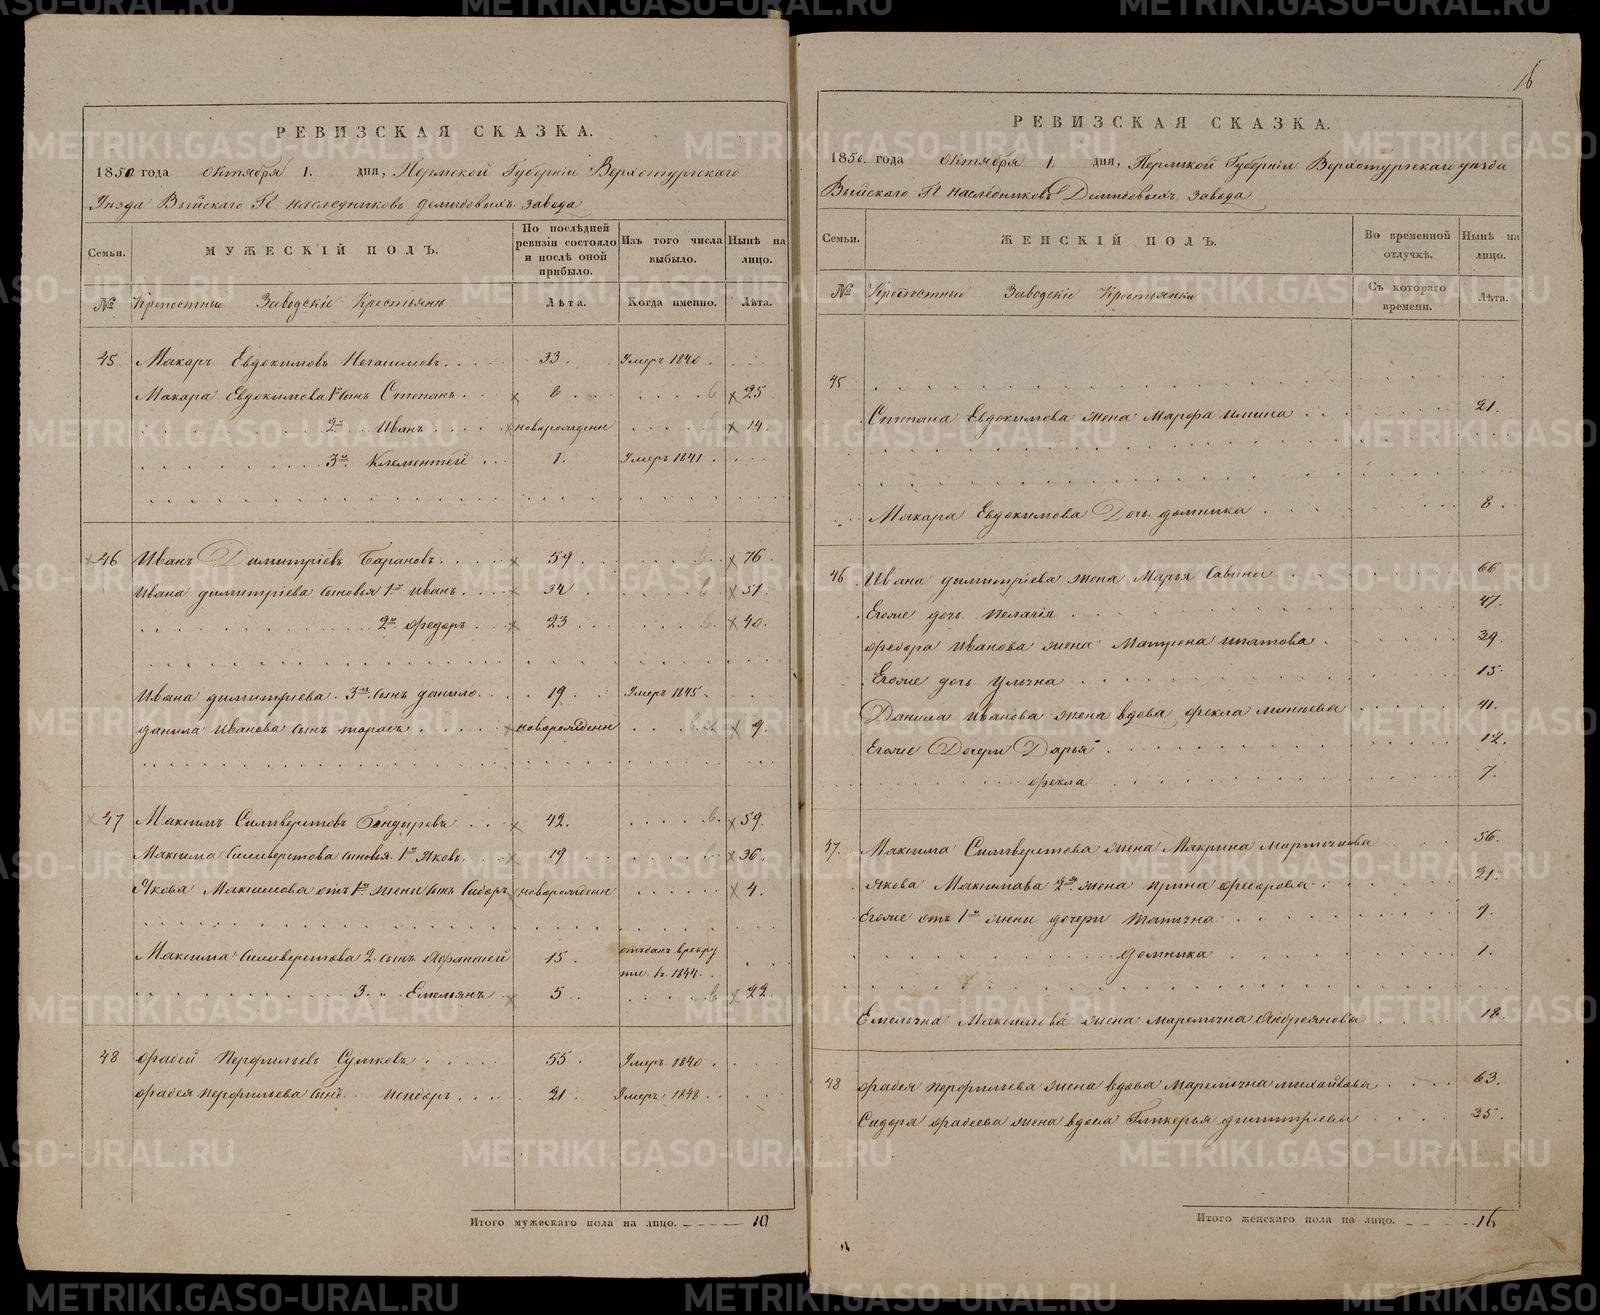 РЕВИЗСКАЯ СКАЗКА.
1850 года Октября 1. дня, Пермской Губерніи Верхотурскаго
Уезда Выйскаго Гг наследниковъ демидовыхъ завода
Семьи.
МУЖЕСКІЙ ПОЛЪ.
По послѣдней ревизіи состояло и послѣ оной прибыло.
Изъ того числа выбыло.
Нынѣ на лицо.
№ Крепостные Заводскіе Крестьяне Лѣта. Когда именно. Лѣта.
45 Макаръ Евдокимовъ 33. Умеръ 1840.
Макара Евдокимова 1й сынъ Степанъ 8 25
2й Иванъ новорожденн 14
3й Клементей 1. Умеръ 1841
46 Иванъ Димитріевъ Барановъ 59 76
Ивана димитріева сыновья 1й Иванъ 34 51
2й Федоръ 23 40.
Ивана димитріева 3й сынъ данило 19 Умеръ 1845.
данила Иванова сынъ тарасъ новорожденн 9
47 Максимъ Силиверстовъ Бондыревъ 42. 59.
Максима Силиверстова сыновья 1й Яковъ 19 36.
Якова Максимова отъ 1й жены сынъ Сидоръ новорожденн 4.
Максима Силиверстова 2. сынъ Афанасей 15. отъданъ врекру
ты. въ 1844.
3. „ Емельянъ 5 22
48 Фадей Перфильевъ Сулковъ 55 Умеръ 1840.
Фадея Перфильева сынъ 21 Умеръ 1848
Итого мужескаго пола на лицо. 10
16
РЕВИЗСКАЯ СКАЗКА.
1850. года Октября 1. дня, Пермской Губерніи Верхотурскаго уезда
Выйскаго Гг наследниковъ Демидовыхъ завода
Семьи.
ЖЕНСКІЙ ПОЛЪ.
Во временной отлучкѣ.
Нынѣ на лицо.
№ Крепостные Заводскіе Крестьянки Съ котораго времени. Лѣта.
45
Степана Евдокимова жена Марфа 21.
Макара Евдокимова Дочь домника 8
46 Ивана димитріева жена Марья Савина 66
Егоже дочь Пелагія 47.
Федора Иванова жена Матрена Ипатова 39.
Егоже дочь Ульяна 15
Данила Иванова жена вдова Фекла Минеева 41.
Егоже Дочери Дарья 12.
Фекла 7.
47. Максима Силиверстова жена Макрина Мартынова 56.
Якова Максимава 2я жена Ирина Федорова 21.
Егоже отъ 1й жены дочери Татьяна 9.
домника 1.
Емельяна Максимова жена Маремьяна Андреянова 18.
48 Фадея Перфильева жена вдова Маремьяна михайлова 63.
Сидора Фадеева жена вдова Гликерья димитріева 35.
Итого женскаго пола на лицо. 16
METRIKI.GASO-URAL.RU